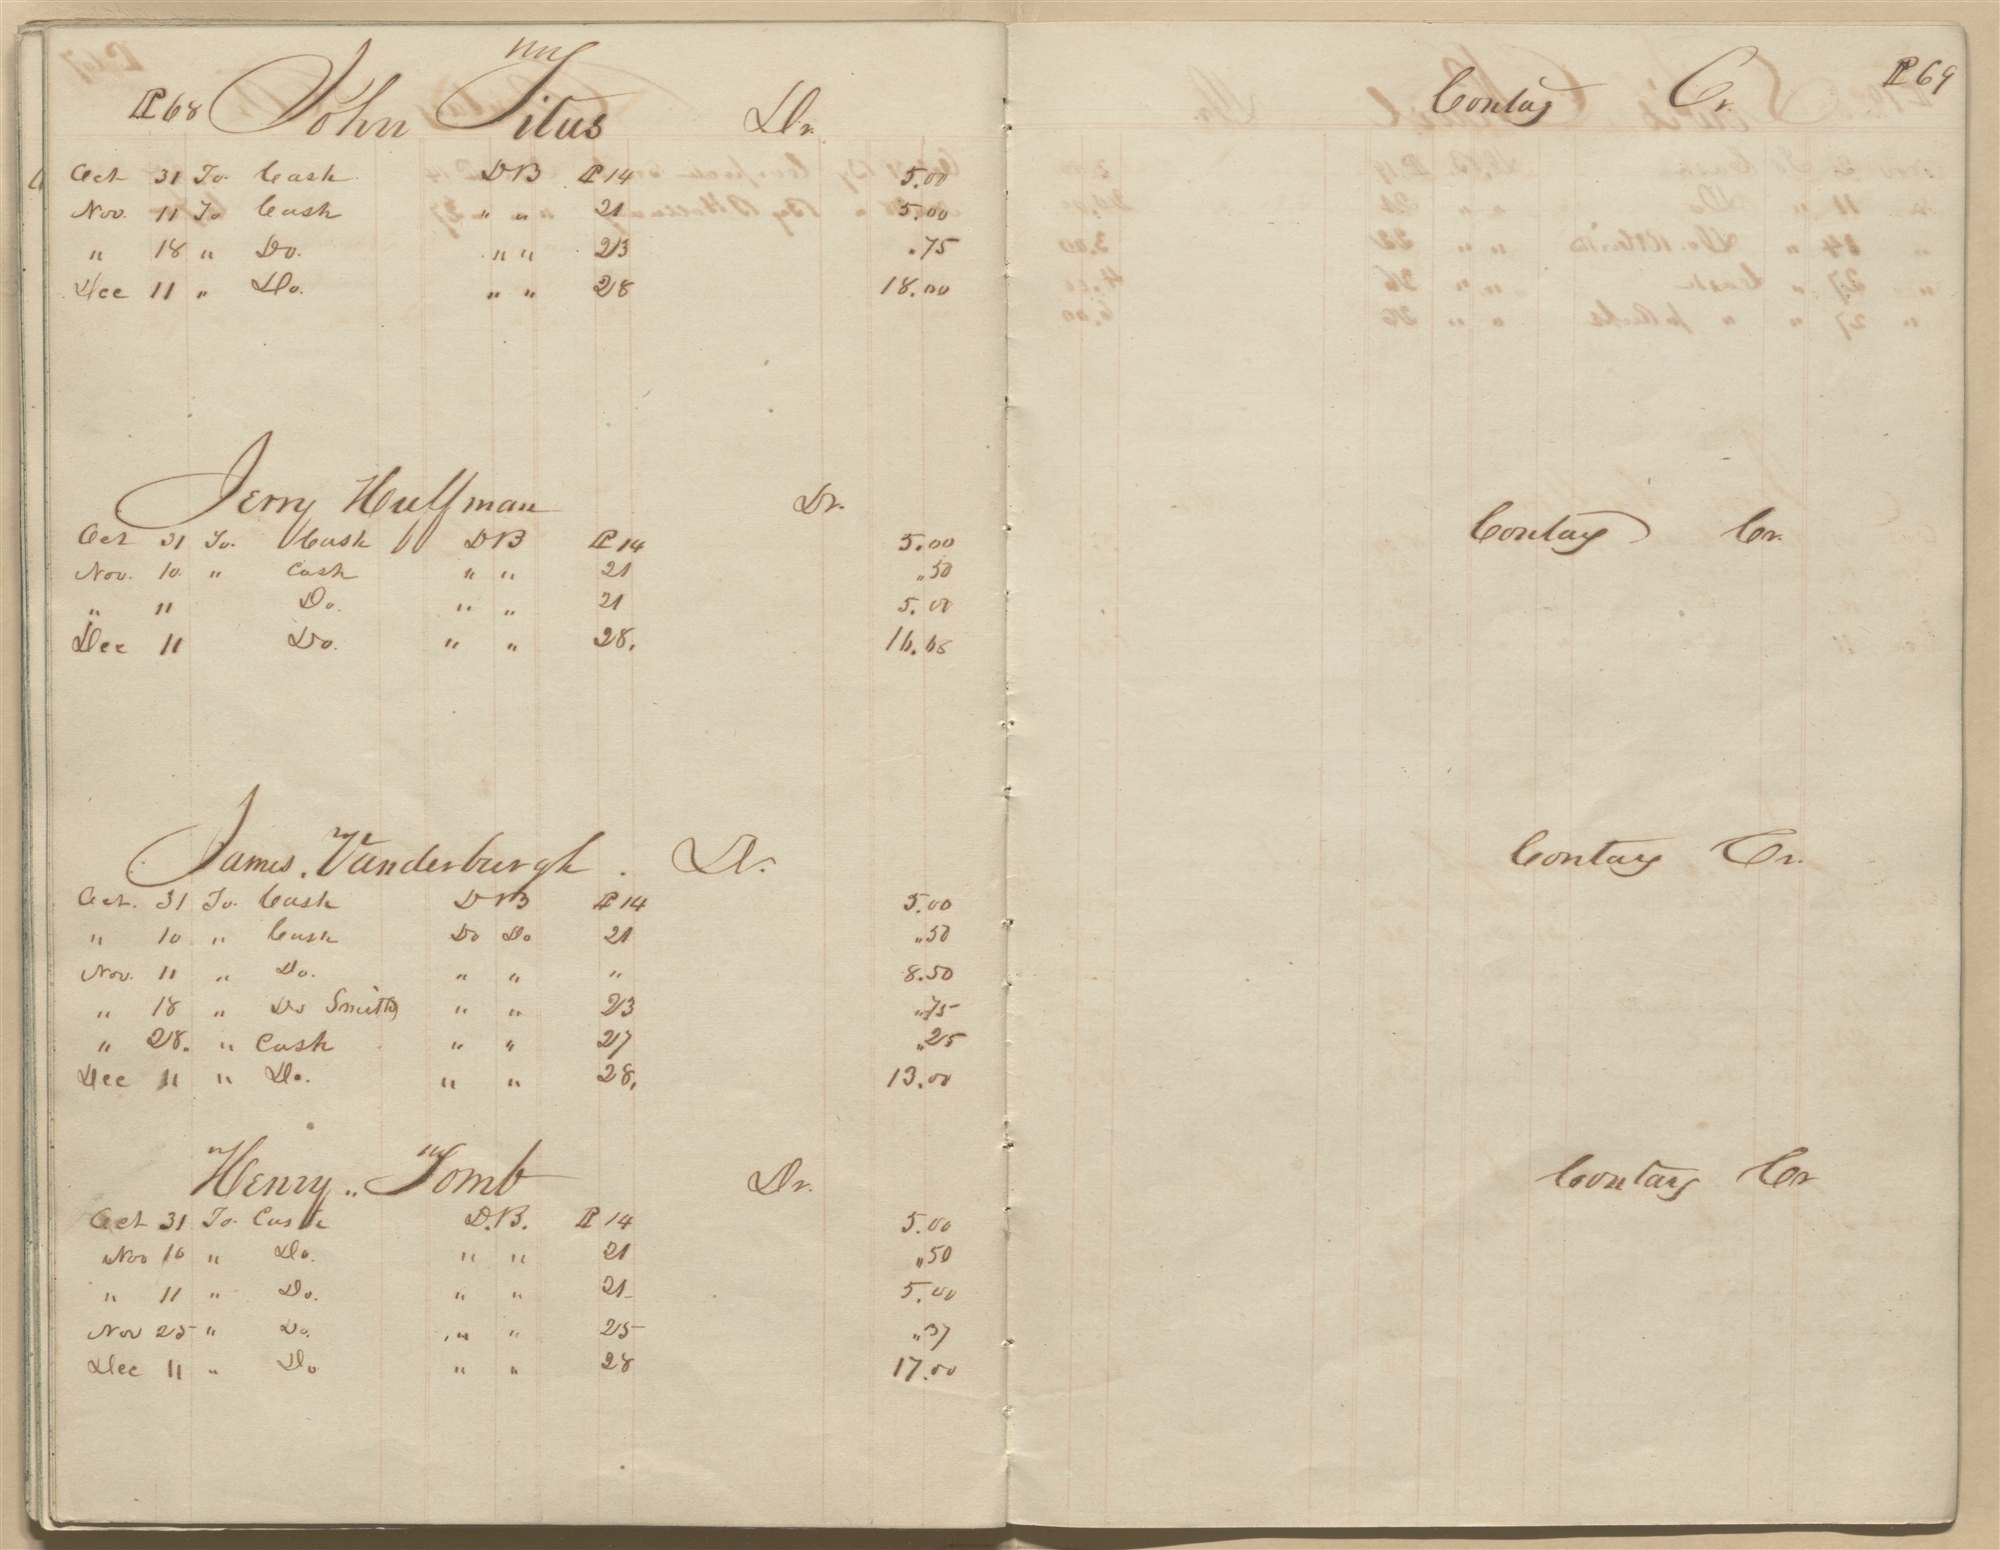 P68 John Titus Dr.
Oct 31 To Cash DB P 14 5.00
Nov. 11 To Cash " " 21 5.00
" 18 " Do. " " 23 .75
Dec 11 " Do. " " 28 18.00
Jerry Huffman Dr.
Oct 31 To. Cash DB P 14 5.00
Nov. 10 " Cash " " 21 "50
" 11 Do. " " 21 5.00
Dec 11 Do. " " 28. 16.68
James. Vanderburgh. Dr.
Oct. 31 To. Cash DB P 14 5.00
" 10 " Cash Do Do 21 "50
Nov. 11 " Do. " " " 8.50
" 18 " Do Smith " " 23 "75
" 28. " Cash " " 27 "25
Dec 11 " Do. " " 28. 13.00
Henry " Tomb Dr.
Oct 31 To. Cash D.B. P 14 5.00
Nov 10 " Do. " " 21 "50
" 11 " Do. " " 21 5.00
Nov 25 " Do. " " 25 "37
Dec 11 " Do " " 28 17.00
P 69
Contay Cr.
Contay Cr.
Contay Cr.
Contay Cr